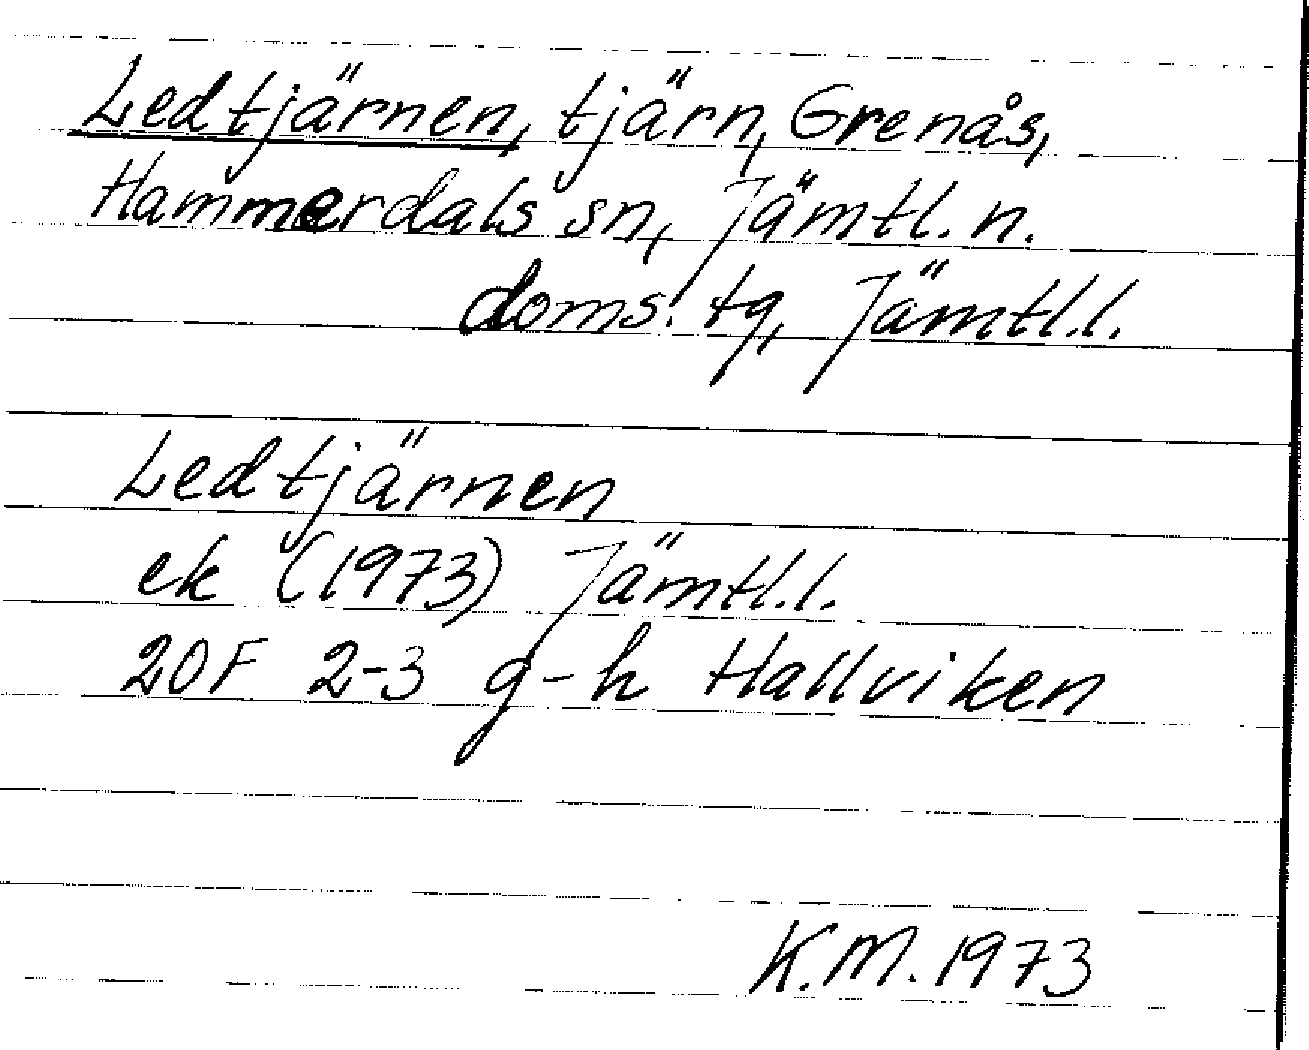 Ledtjärnen, tjärn, Grenås,
Hammerdals sn, Jämtl. n.
doms. tg, Jämtl.l.
Ledtjärnen
ek (1973) Jämtl.l.
20F 2-3 g-h Hallviken
K.M. 1973